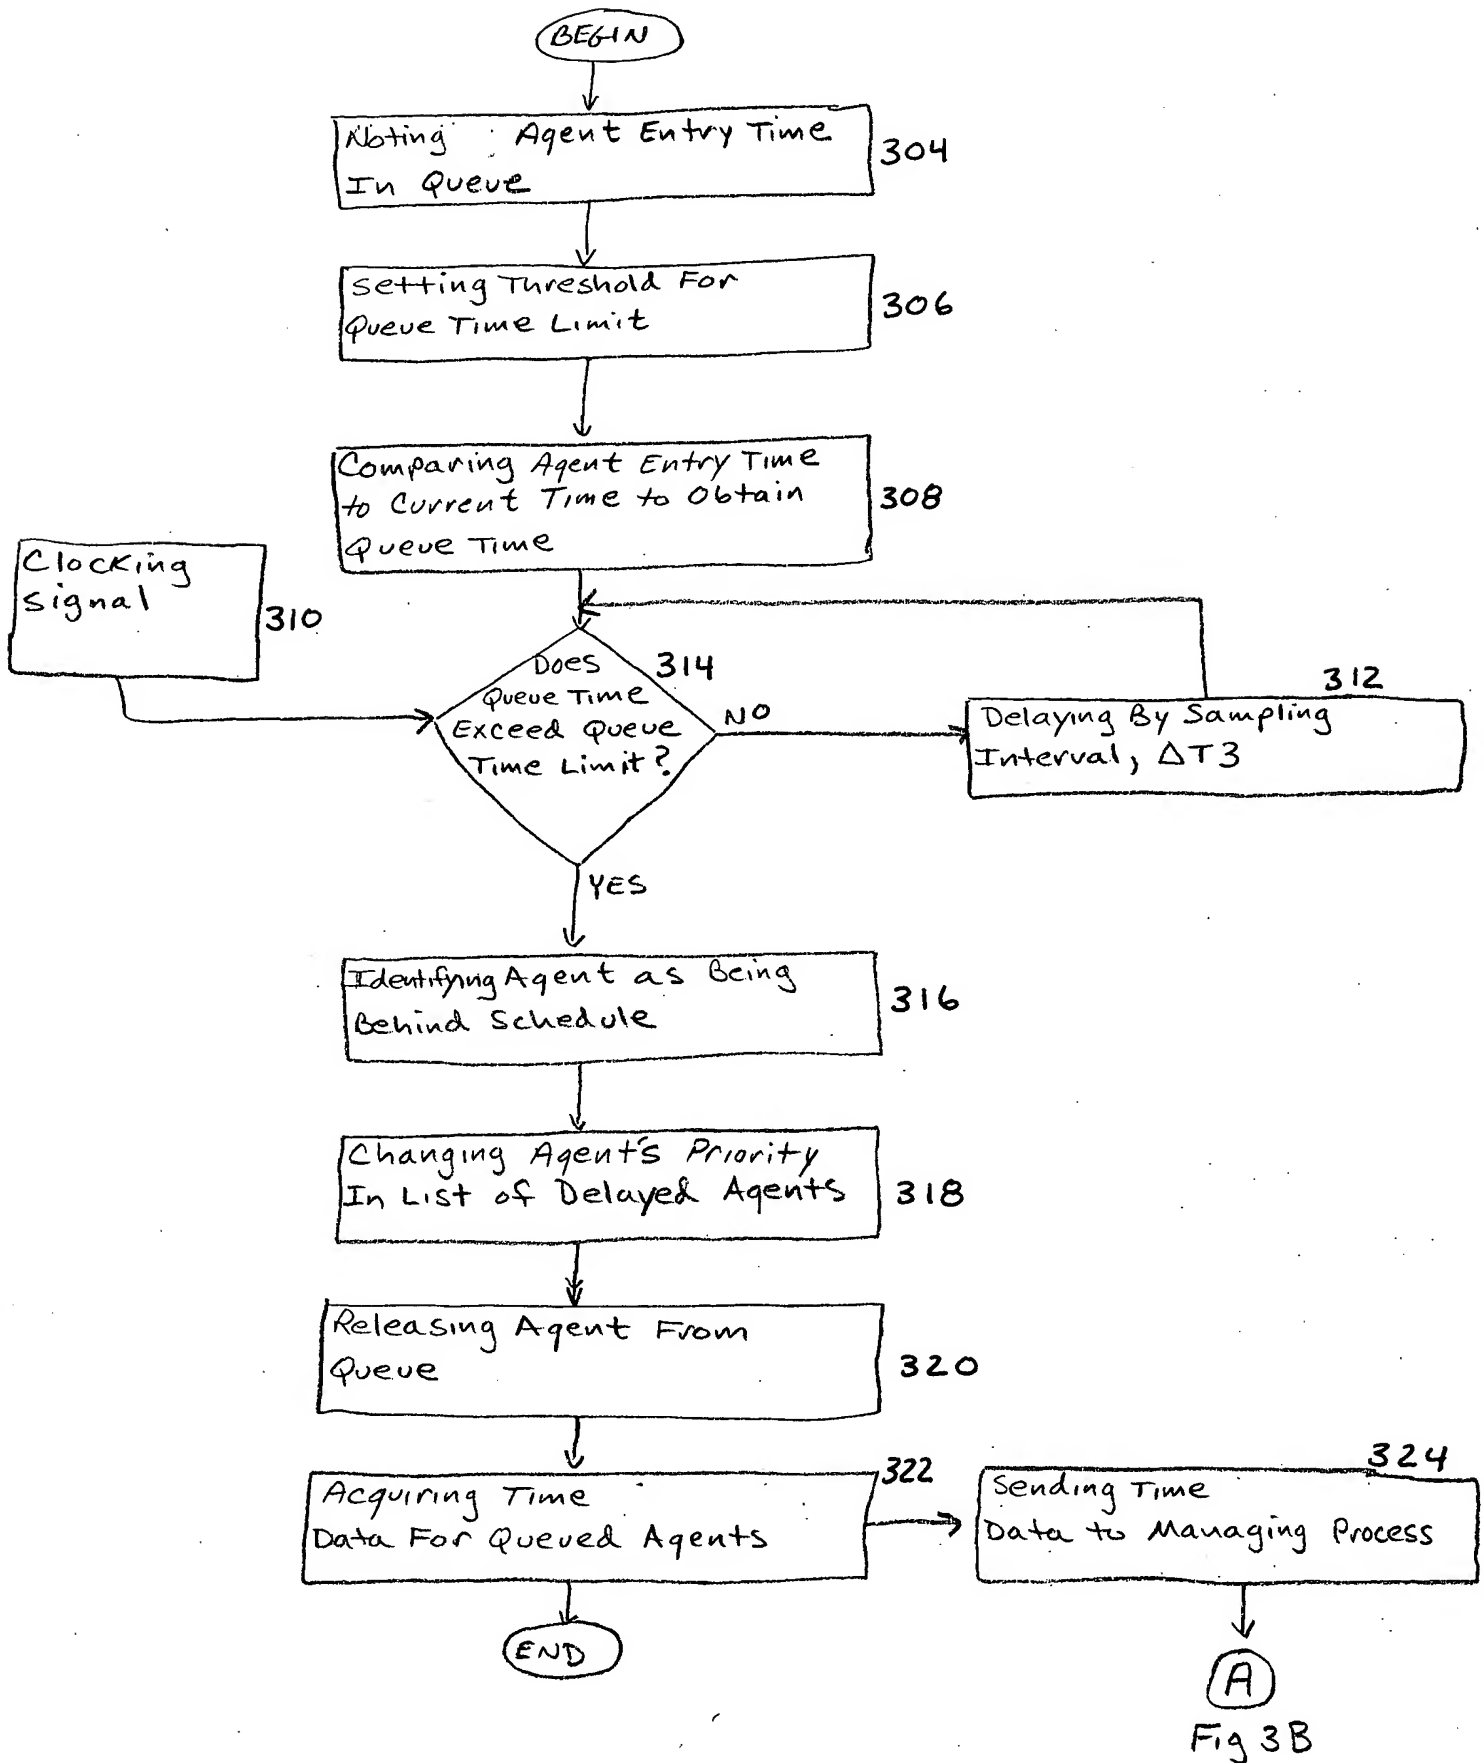 BEGIN
Noting Agent Entry Time
In Queue
304
Setting Threshold For
Queue Time Limit
306
Comparing Agent Entry Time
to Current Time to Obtain
Queue Time
308
Clocking
Signal
310
Does
Queue Time
Exceed Queue
Time Limit?
314
NO
312
Delaying By Sampling
Interval, ΔT3
YES
Identifying Agent as Being
Behind Schedule
316
Changing Agent's Priority
In List of Delayed Agents
318
Releasing Agent From
Queue
320
Acquiring Time
Data For Queued Agents
322
324
Sending Time
Data to Managing Process
END
A
Fig 3B